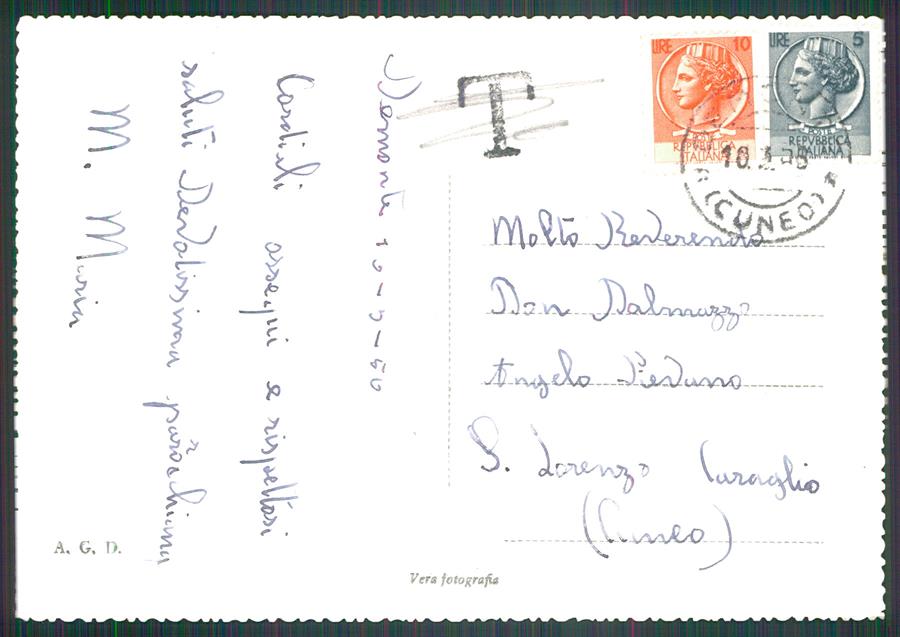 Demonte 10-9-60
Cordiali ossequi e rispettosi
saluti Devotissima parocchiana
M. Maria
T
LIRE 10
POSTE
REPVBBLICA
ITALIANA
LIRE 5
POSTE
REPVBBLICA
ITALIANA
(CUNEO)
Molto Reverendo
Don Dalmazzo
Angelo Pievano
S. Lorenzo Caraglio
(Cuneo)
A. G. D.
Vera fotografia